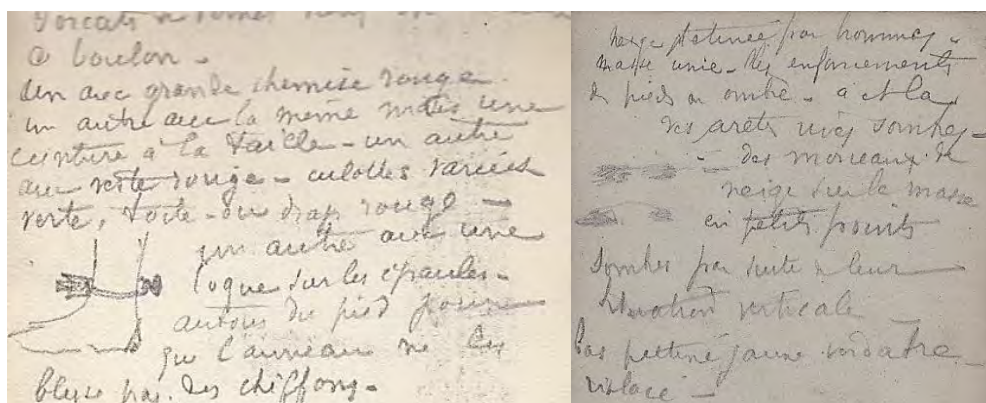 Forcats
à boulon -
un avec grande chemise rouge.
un autre avec la même mais une
ceinture à la taille - un autre
avec veste rouge - culottes variées
verte, toile - ou drap rouge -
un autre avec une
loque sur les épaules -
autour du pied pour
que l'anneau ne les
blesse pas. des chiffons -
neige piétinée par hommes -
masse unie - les enfoncements
de pieds en ombre - çà et là
des arêtes vives sombres -
des morceaux de
neige sur la masse
en petits points
sombres par suite de leur
situation verticale
pas piétiné jaune verdatre
violacé -